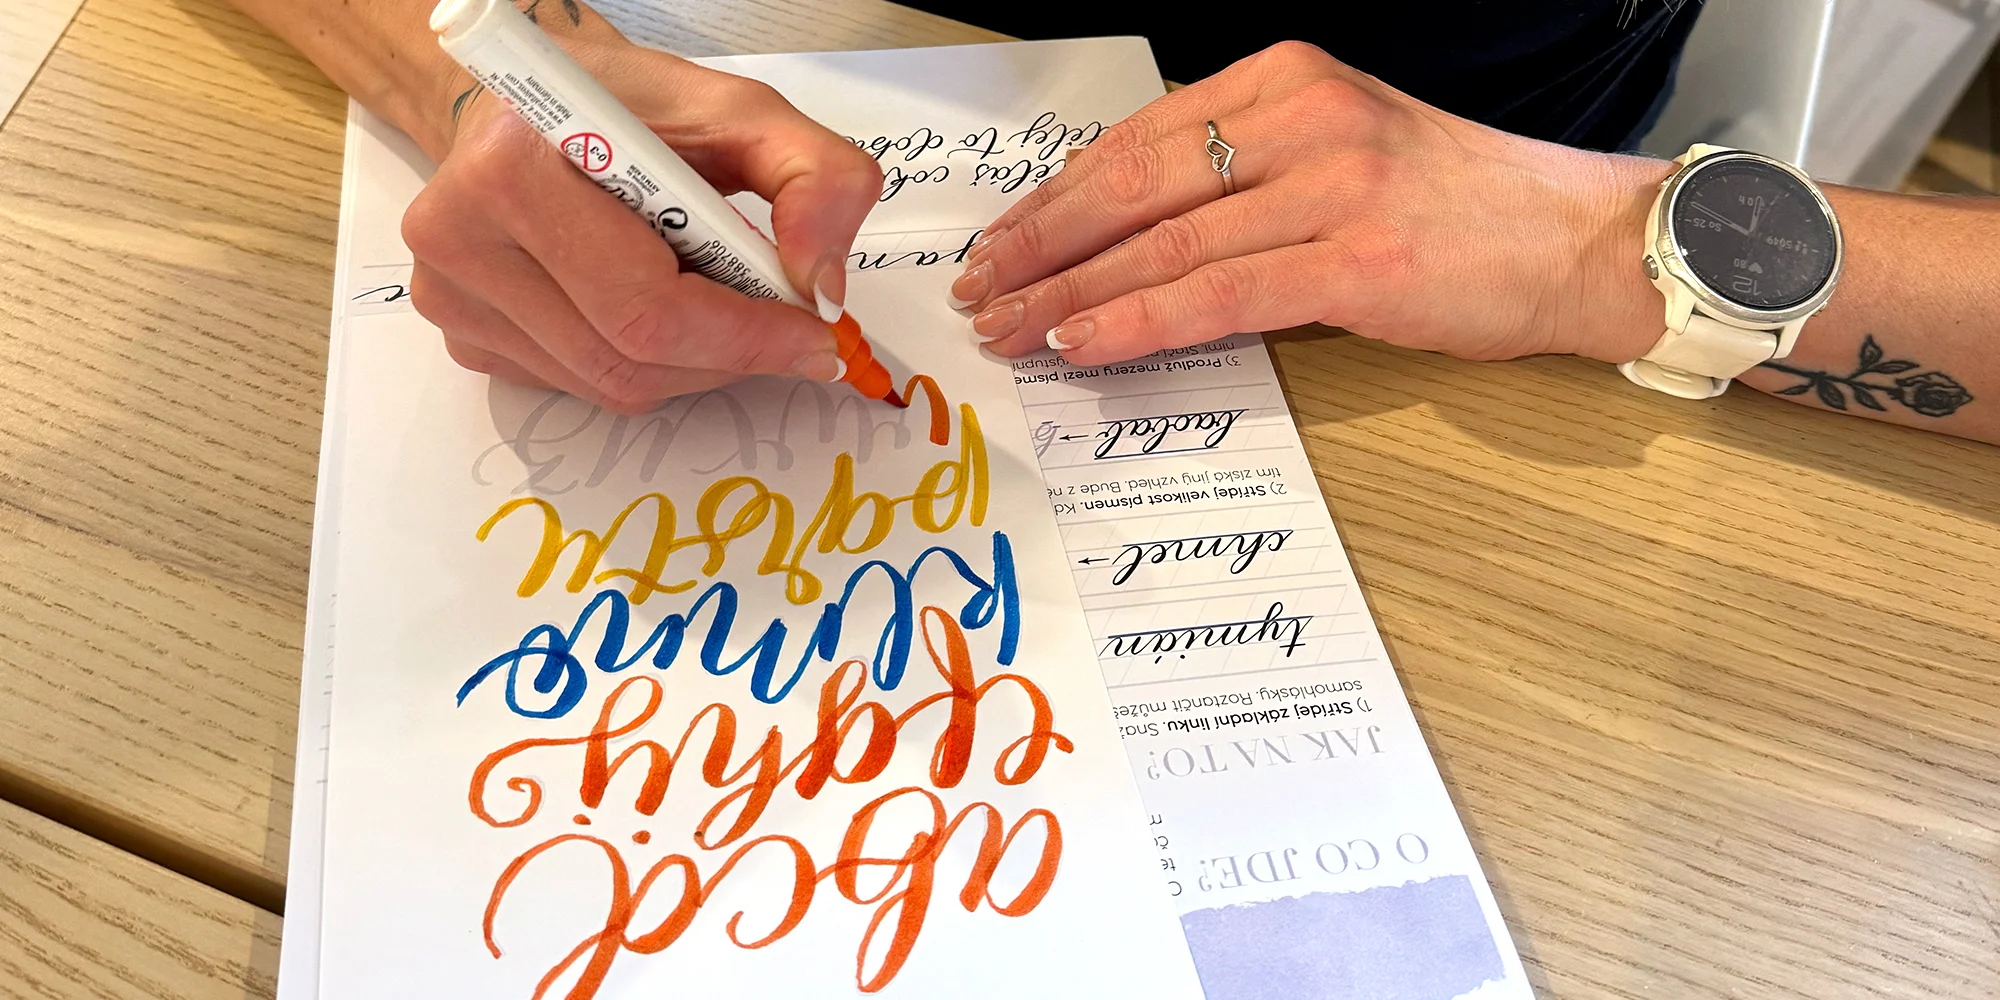 abcd
efghij
klmno
pqrstu
vwxyz
O CO JDE?
JAK NA TO?
1) Střídej základní linku. Snaž
samohlásky. Roztančit můžeš
tymián
chmel →
2) Střídej velikost písmen. Kd
tím získá jiný vzhled. Bude z ně
baobab → b
3) Prodluž mezery mezi písme
nimi. Stačí
yan
ěláš cok
ěly to dob
Made in Germany
0-3
So 25
5049
80
12